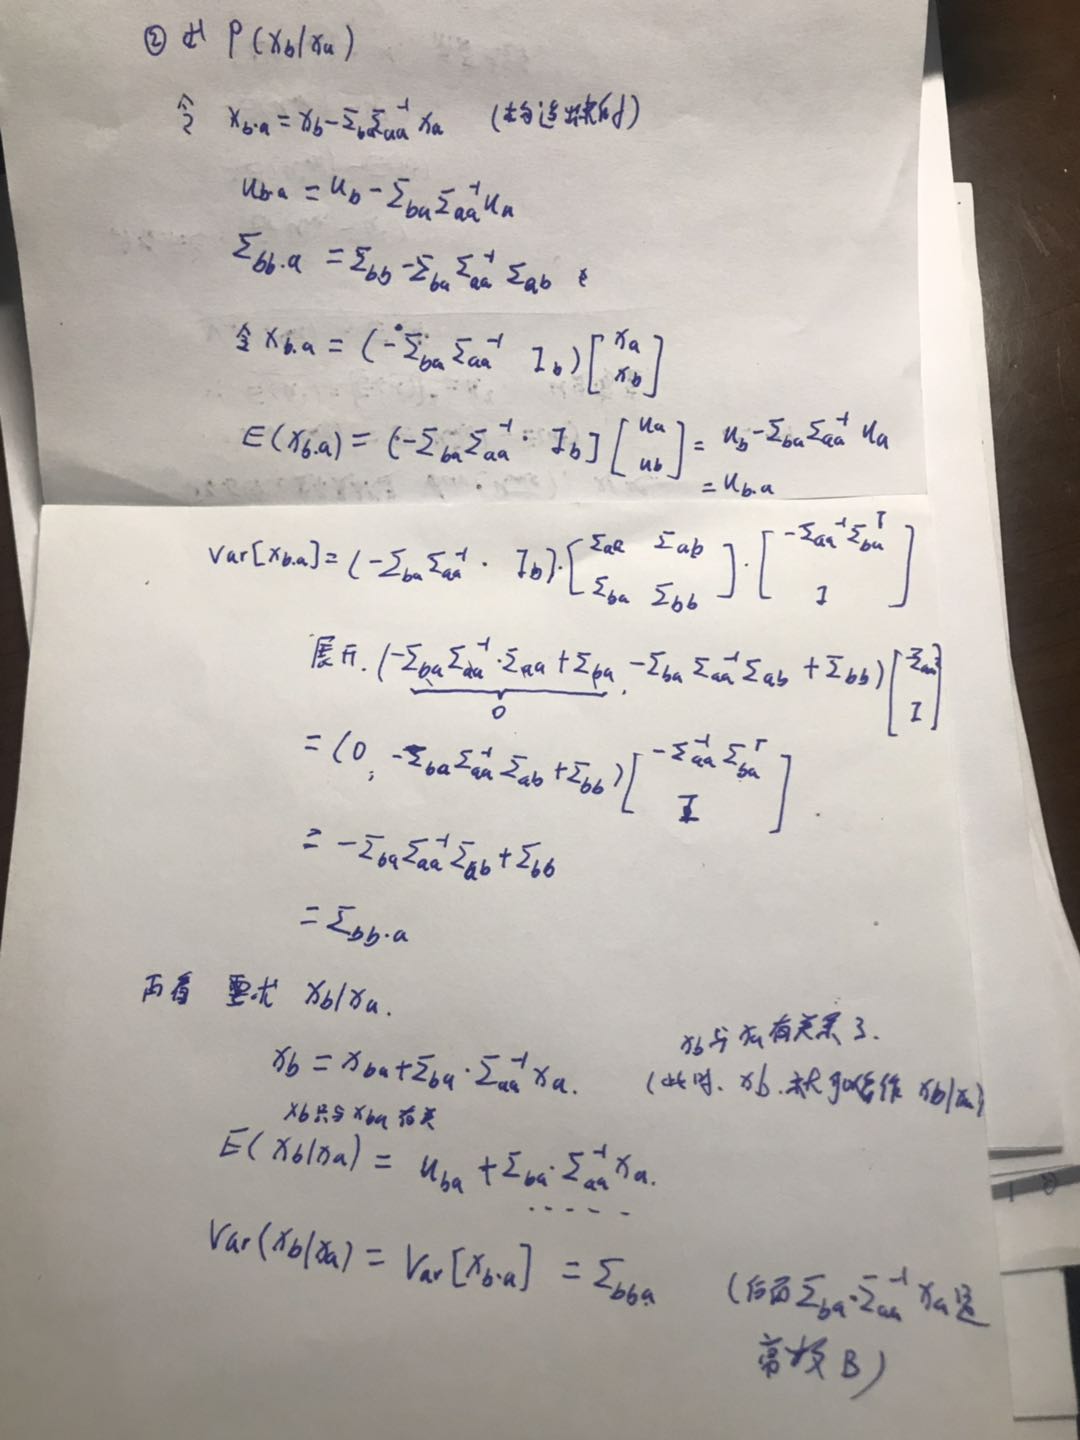 ② 求 P(x_b|x_a)
令 x_{b·a} = x_b - Σ_{ba}Σ_{aa}^{-1} x_a (构造出来的)
u_{b·a} = u_b - Σ_{ba}Σ_{aa}^{-1} u_a
Σ_{bb·a} = Σ_{bb} - Σ_{ba} Σ_{aa}^{-1} Σ_{ab}
令 x_{b·a} = (-Σ_{ba} Σ_{aa}^{-1} I_b) [x_a x_b]
E(x_{b·a}) = (-Σ_{ba}Σ_{aa}^{-1} · I_b] [u_a u_b] = u_b - Σ_{ba}Σ_{aa}^{-1} u_a
= u_{b·a}
Var[x_{b·a}] = (-Σ_{ba}Σ_{aa}^{-1} · I_b) · [Σ_{aa} Σ_{ab} Σ_{ba} Σ_{bb}] · [-Σ_{aa}^{-1}Σ_{ba}^T I]
展开. (-Σ_{ba}Σ_{aa}^{-1}·Σ_{aa} + Σ_{ba}, -Σ_{ba} Σ_{aa}^{-1}Σ_{ab} + Σ_{bb}) [ I]
0
= (0, -Σ_{ba}Σ_{aa}^{-1}Σ_{ab} + Σ_{bb}) [-Σ_{aa}^{-1} Σ_{ba}^T I]
= -Σ_{ba}Σ_{aa}^{-1}Σ_{ab} + Σ_{bb}
= Σ_{bb·a}
再看 要求 x_b|x_a.
x_b与x_a有关系了.
x_b = x_{ba} + Σ_{ba}·Σ_{aa}^{-1} x_a. (此时. x_b. 就 作 x_b|x_a)
x_b只与x_{ba}有关
E(x_b|x_a) = u_{ba} + Σ_{ba}·Σ_{aa}^{-1} x_a.
Var(x_b|x_a) = Var[x_{b·a}] = Σ_{bba} (后面Σ_{ba}·Σ_{aa}^{-1} x_a是
常数B)